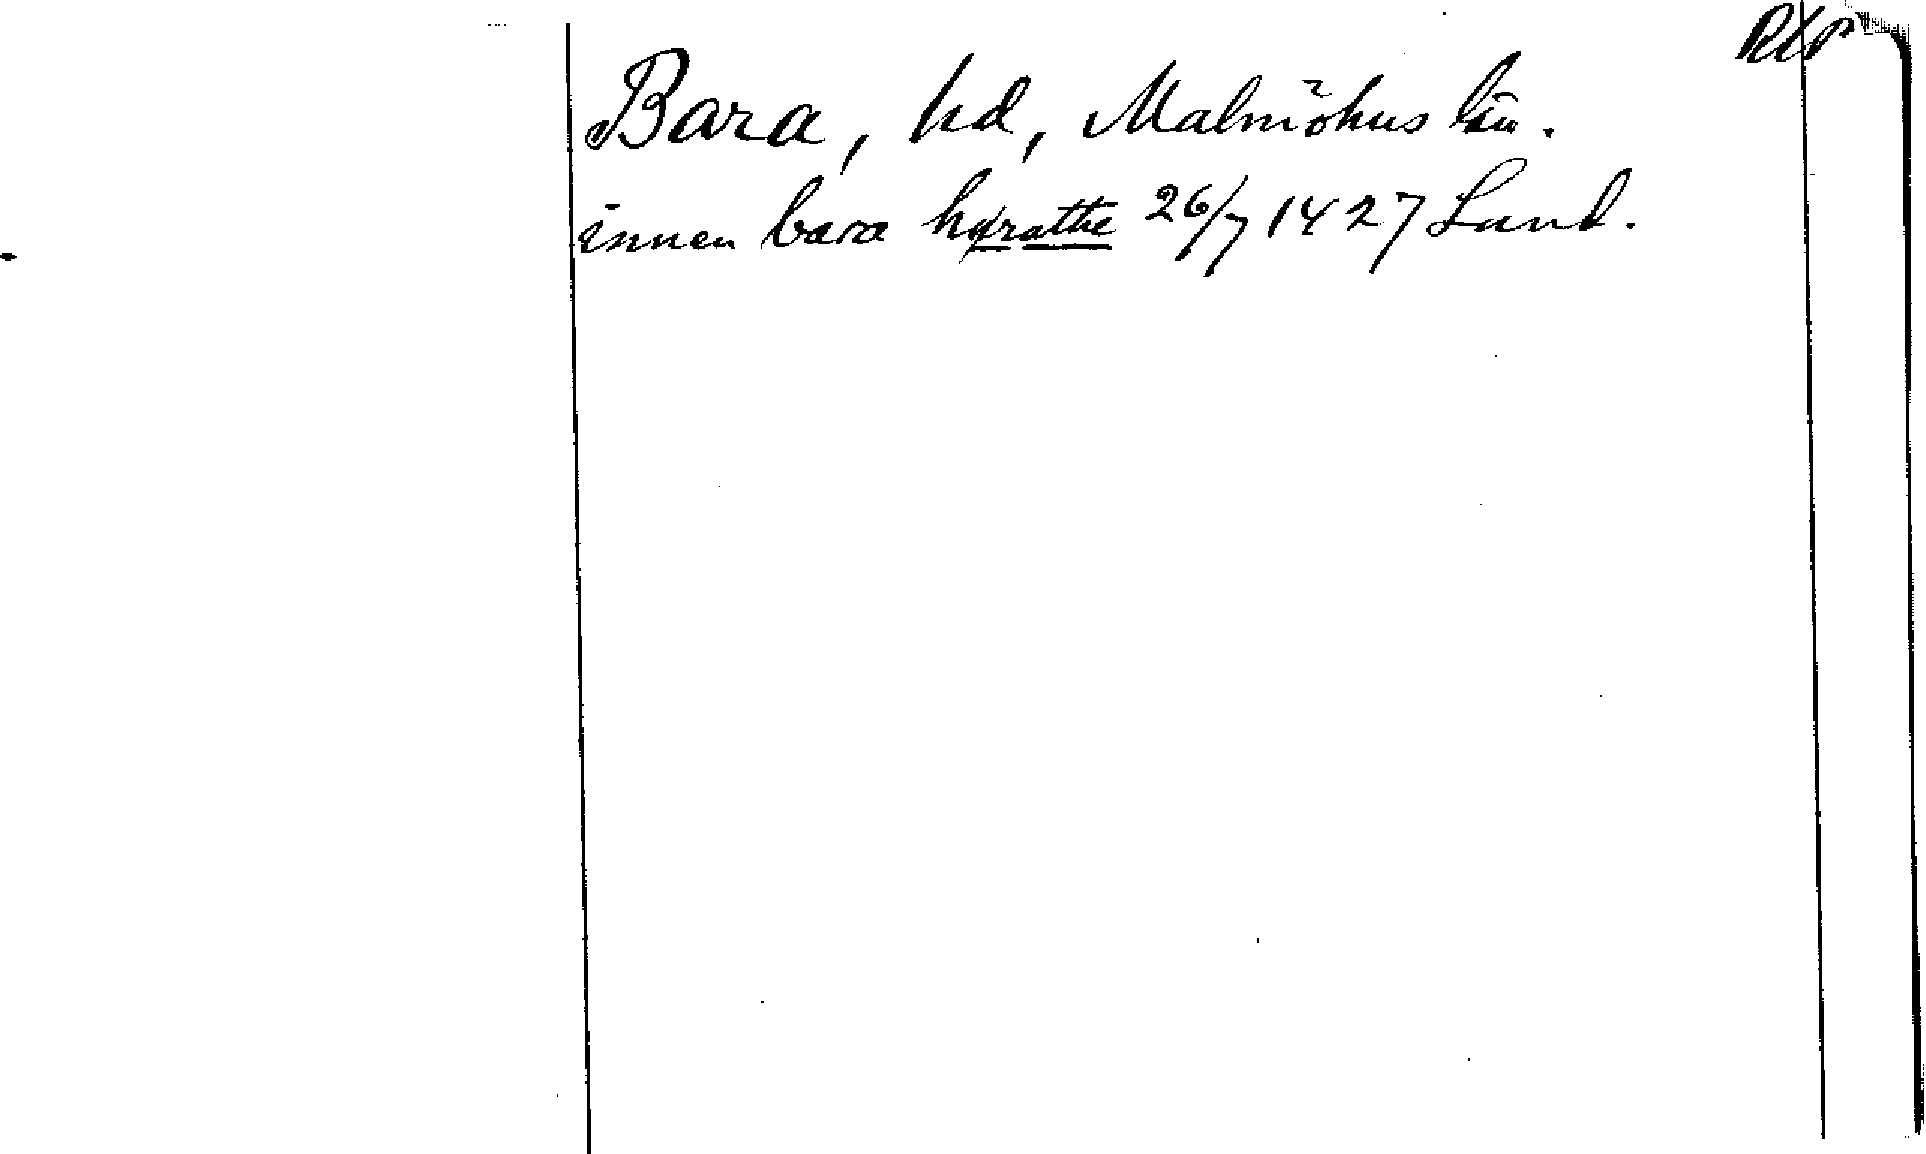 RAp
Bara, hd, Malmöhus län.
innen bara høratthe 26/7 1427 Lund.